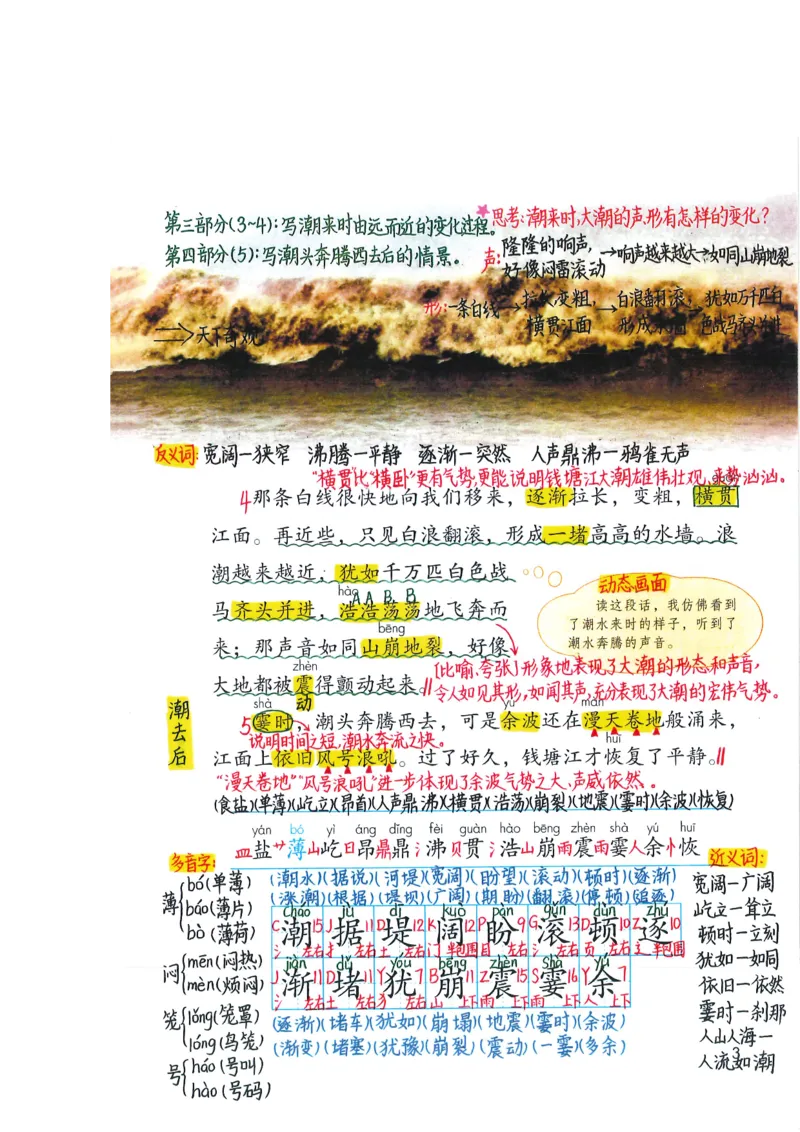 第三部分(3~4):写潮来时由远而近的变化过程。
第四部分(5):写潮头奔腾西去后的情景。
思考:潮来时,大潮的声、形有怎样的变化?
声:隆隆的响声,好像闷雷滚动→响声越来越大→如同山崩地裂
形:一条白线→拉长变粗,横贯江面→白浪翻滚,形成水墙→犹如万千匹白色战马齐头并进
天下奇观
反义词:宽阔—狭窄 沸腾—平静 逐渐—突然 人声鼎沸—鸦雀无声
“横贯”比“横卧”更有气势,更能说明钱塘江大潮雄伟壮观、来势汹汹。
4那条白线很快地向我们移来,逐渐拉长,变粗,横贯
江面。再近些,只见白浪翻滚,形成一堵高高的水墙。浪
潮越来越近,犹如千万匹白色战
hào
AABB
马齐头并进,浩浩荡荡地飞奔而
bēng
来;那声音如同山崩地裂,好像
zhèn
大地都被震得颤动起来。
动
动态画面
读这段话,我仿佛看到
了潮水来时的样子,听到了
潮水奔腾的声音。
[比喻、夸张]形象地表现了大潮的形态和声音,
令人如见其形,如闻其声,充分表现了大潮的宏伟气势。
潮去后
shà yú màn
5霎时,潮头奔腾西去,可是余波还在漫天卷地般涌来,
说明时间之短,潮水奔流之快。
huī
江面上依旧风号浪吼。过了好久,钱塘江才恢复了平静。
“漫天卷地”“风号浪吼”进一步体现了余波气势之大、声威依然。
(食盐)(单薄)(屹立)(昂首)(人声鼎沸)(横贯)(浩荡)(崩裂)(地震)(霎时)(余波)(恢复)
yán bó yì áng dǐng fèi guàn hào bēng zhèn shà yú huī
皿盐艹薄山屹日昂鼎鼎氵沸贝贯氵浩山崩雨震雨霎人余忄恢
多音字:
薄 bó(单薄)
báo(薄片)
bò(薄荷)
闷 mēn(闷热)
mèn(烦闷)
笼 lǒng(笼罩)
lóng(鸟笼)
号 háo(号叫)
hào(号码)
(潮水)(据说)(河堤)(宽阔)(盼望)(滚动)(顿时)(逐渐)
(涨潮)(根据)(堤坝)(广阔)(期盼)(翻滚)(停顿)(追逐)
cháo jù dī kuò pàn gǔn dùn zhú
C潮15 J据11 D堤12 K阔12 P盼9 G滚13 D顿10 Z逐10
氵左右 扌左右 土左右 门半包围 目左右 氵左右 页左右 辶半包围
jiàn dǔ yóu bēng zhèn shà yú
J渐11 D堵11 Y犹7 B崩11 Z震15 S霎16 Y余7
氵左右 土左右 犭左右 山上下 雨上下 雨上下 人上下
(逐渐)(堵车)(犹如)(崩塌)(地震)(霎时)(余波)
(渐变)(堵塞)(犹豫)(崩裂)(震动)(一霎)(多余)
近义词:
宽阔—广阔
屹立—耸立
顿时—立刻
犹如—如同
依旧—依然
霎时—刹那
人山人海—
人流如潮
3